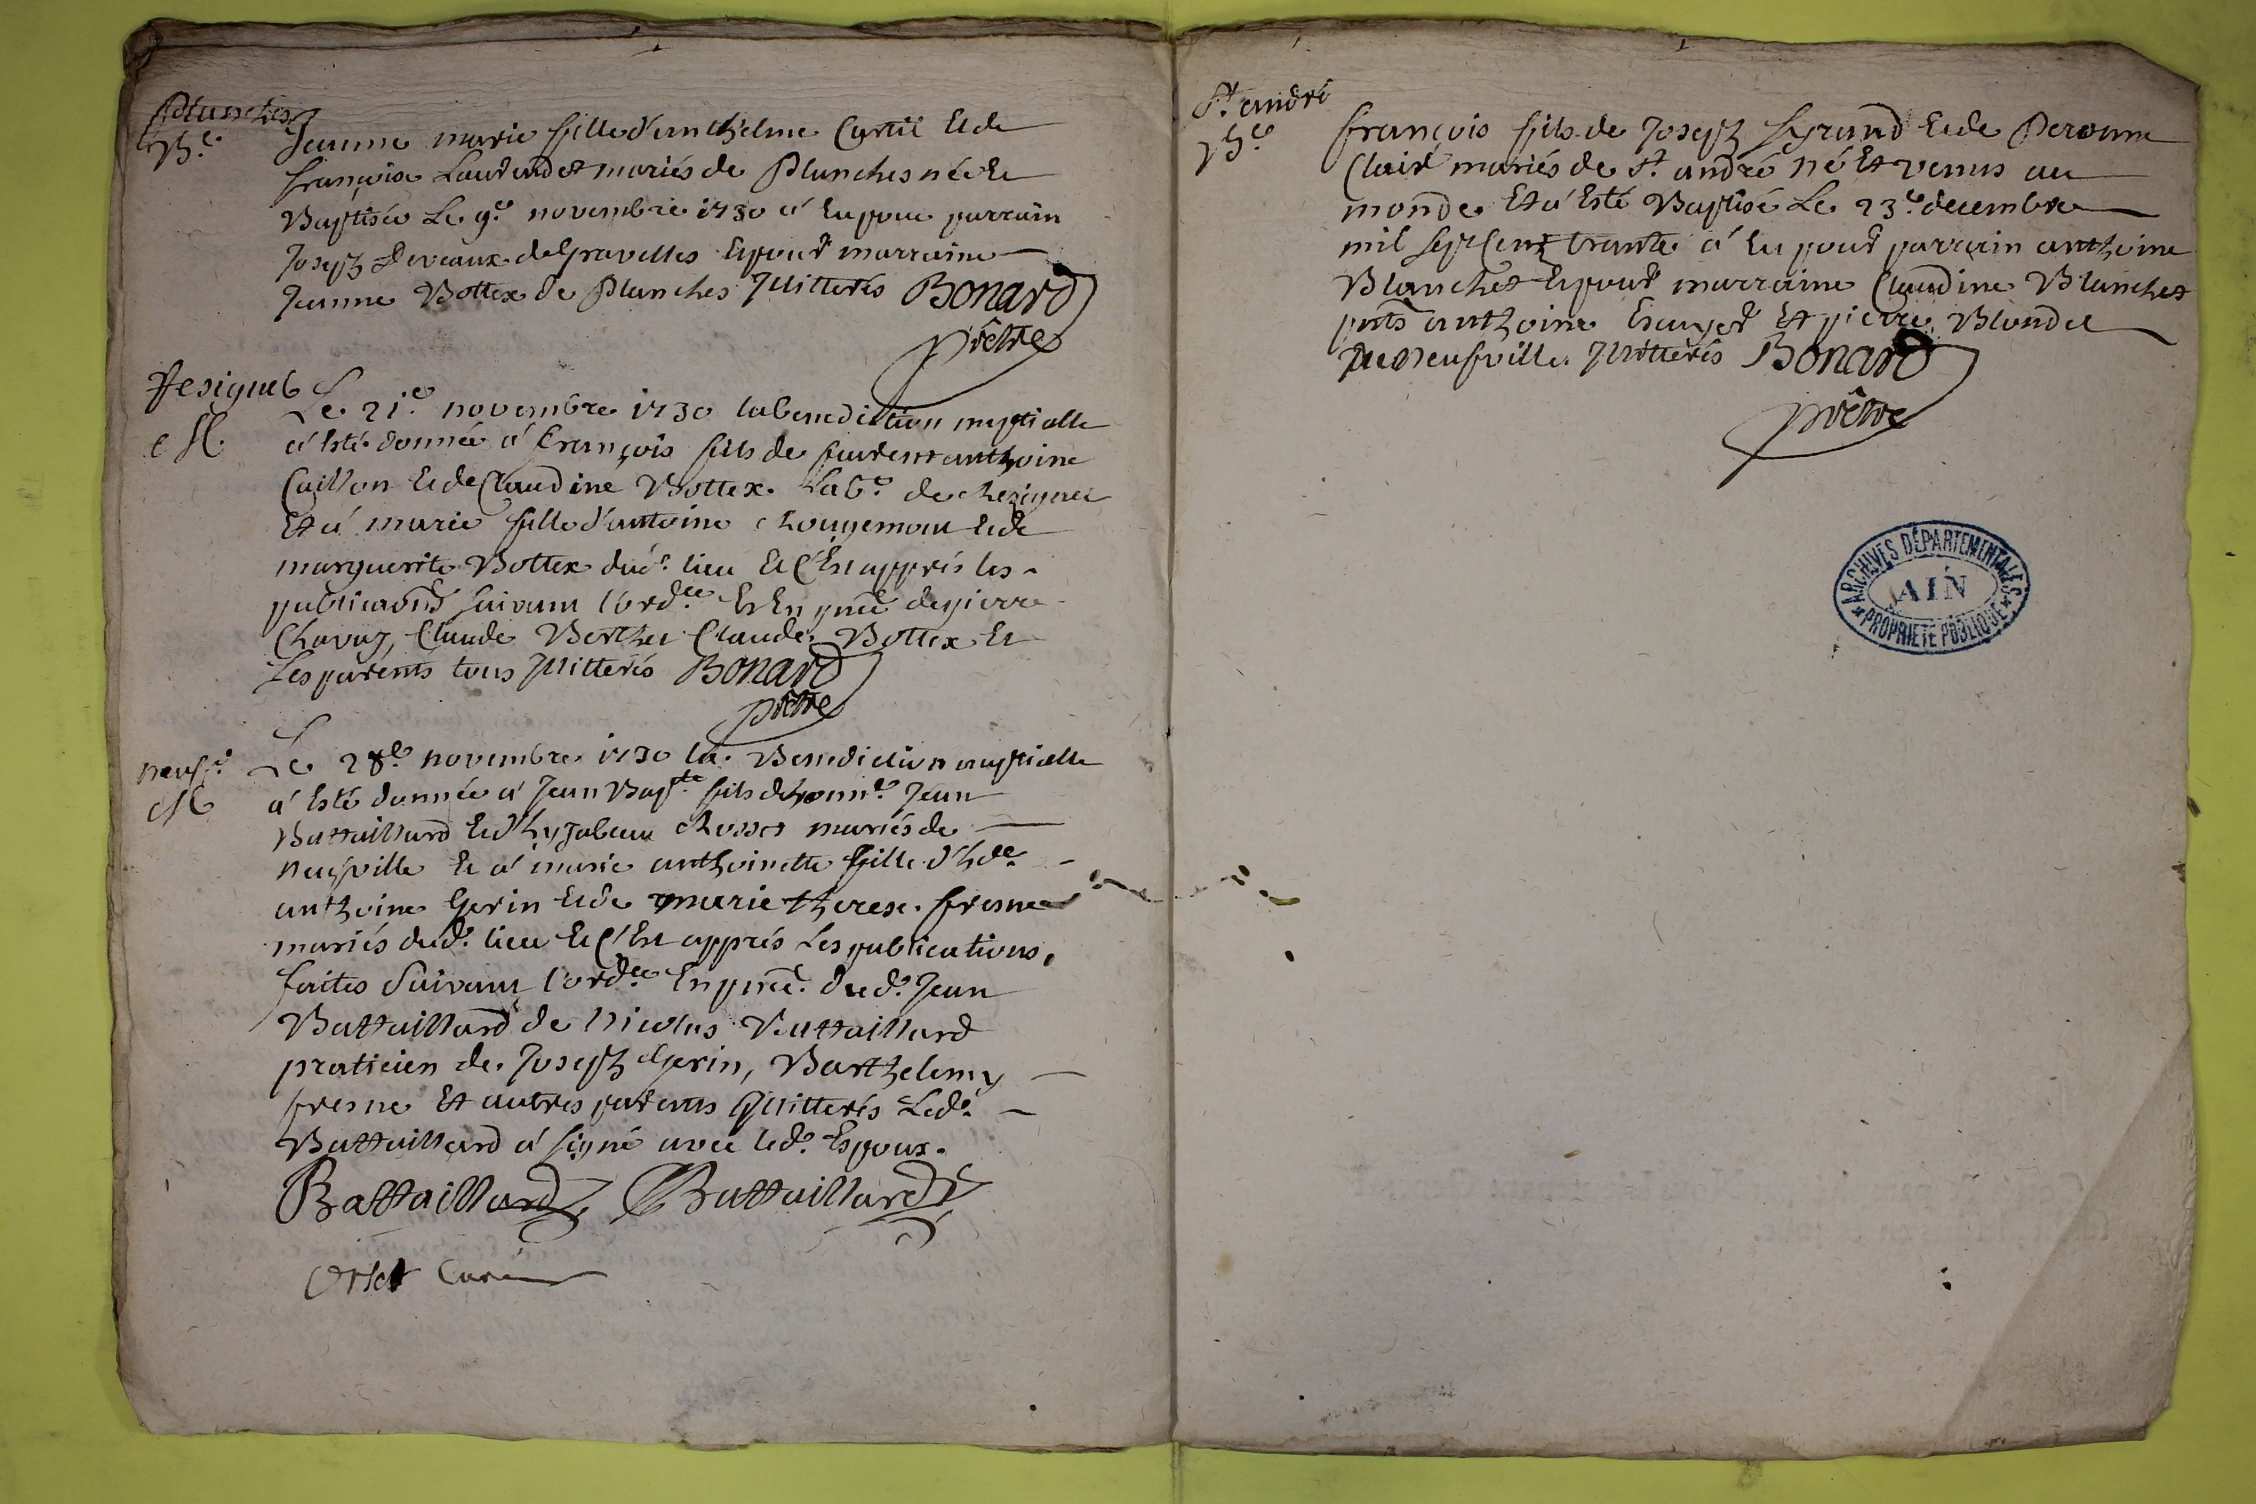 Planches
B.e
Jeanne marie fille d'anthelme Curtil et de
françoise Laurendet mariés de Planches née et
Baptisée Le 9.e novembre 1730 a eu pour parrain
Joseph Deveaux de Gravelles et pour marraine
Jeanne Bottex de Planches Illitterés Bonard
prêtre
M.
Le 21.e novembre 1730 la benediction nuptialle
a esté donnée a françois fils de anthoine
Caillon et de Claudine Bottex Lab.r de
Et a marie fille d'antoine Rougemont et de
marguerite Bottex dud. lieu et c'est apprés les
publicaons suivant l'ord.ce Et En pnce de pierre
Chavuz, Claude Berthet Claude Bottex Et
Les parents tous Illitterés Bonard
prêtre
neuf.e
M
Le 28.e novembre 1730 la Benediction nuptialle
a esté donnée a Jean Bap.te fils de honn.e Jean
Battaillard et d'hysabeau Rosset mariés de
neufville et a marie anthoinette fille d'h.de
anthoine Gerin et de marie therese fresne
mariés dud. lieu et c'est apprés Les publications
faites Suivant l'ord.ce En pnce dud. Jean
Battaillard de Nicolas Battaillard
praticien de Joseph Gerin, Barthelemy
fresne Et autres parents Illitterés Led.
Battaillard a signé avec led. Espoux.
Battaillard Battaillard
Orset Curé
St. andré
B.e
françois fils de Joseph et de Peronne
Clair mariés de St. andré né Et venus au
monde Et a Esté Baptisé Le 23.e decembre
mil sept Cent trante a eu pour parrain anthoine
Blanchet et pour marraine Claudine Blanchet
pnts anthoine Et pierre Blondel
de neufville Illitterés Bonard
prêtre
ARCHIVES DÉPARTEMENTALES
AIN
PROPRIÉTÉ PUBLIQUE